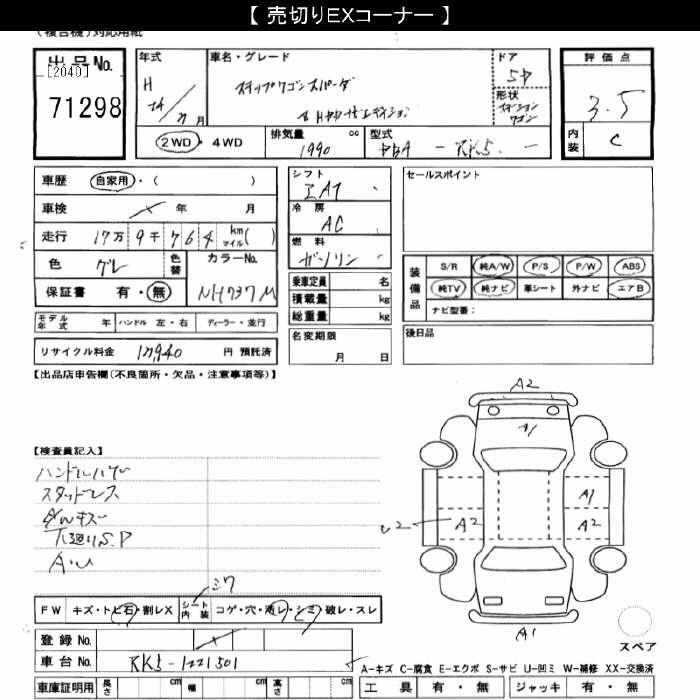 【 売切りEXコーナー 】
(複合機)対応用紙
出品No. 年式 車名・グレード ドア 評価点
[2040] H ステップワゴンスパーダ 5D 3.5
71298 24/7月 形状 ステーションワゴン
2WD・4WD 排気量 1990 cc 型式 DBA - RK5 - 内装 C
車歴 自家用・( ) シフト IAT セールスポイント
車検 年 月 冷房 AC
走行 17万9千764 km マイル( ) 燃料 ガソリン
色 グレ 色替 カラーNo. 装備品 S/R 純A/W P/S P/W ABS
保証書 有・無 NH737M 乗車定員 名 純TV 純ナビ 革シート 外ナビ エアB
積載量 kg ナビ型番:
モデル年式 年 ハンドル 左・右 ディーラー・並行 総重量 kg 後日品
リサイクル料金 17940 円 預託済 名変期限 月 日
【出品店申告欄(不良箇所・欠品・注意事項等)】
A2
A1
【検査員記入】
ハンドルハゲ
スタッドレス
A1
U2 A2 A2
下廻りS.P
A.U
シワ
FW キズ・トビ石・割レX シート内装 コゲ・穴・汚レ・シミ・破レ・スレ
登録No.
A1
スペア
車台No. RK5-1221501
A-キズ C-腐食 E-エクボ S-サビ U-凹ミ W-補修 XX-交換済
車庫証明用 長さ cm 幅 cm 高さ cm 工具 有・無 ジャッキ 有・無